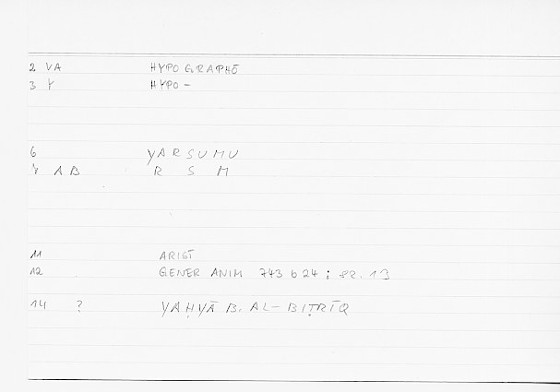 2 VA HYPOGRAPHĒ
3 Y HYPO-
6 YARSUMU
AB R S M
11 ARIST
12 GENER ANIM 743 b 24 ; 82. 13
14 ? YAḤYĀ B. AL-BIṬRĪQ